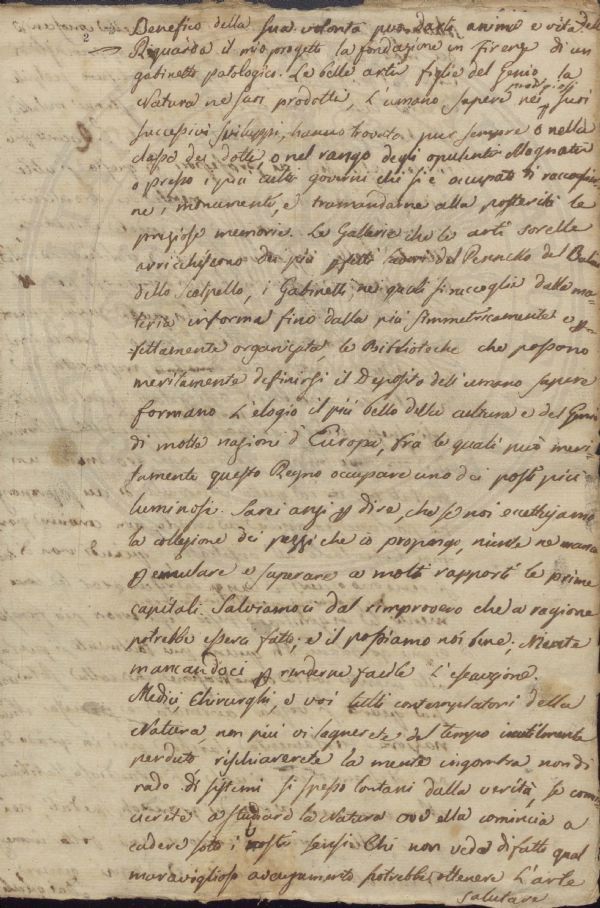 Benefico della sua volontà può darli anima e vita
2
Riguarda il mio progetto la fondazione in Firenze di un
gabinetto patologico. Le belle arti figlie del Genio, la
Natura ne suoi prodotti, L'umano sapere nei suoi
successivi sviluppi, hanno trovato pur sempre o nella
classe dei dotti, o nel rango degli opulenti Magnati
o presso i più culti governi chi si è occupato di raccoglier
ne i monumenti, e tramandarne alla posterità le
preziose memorie. Le Gallerie che le arti sorelle
arricchiscono dei più del Pennello del Bulino
dello Scalpello, i Gabinetti nei quali si raccoglie dalla ma-
teria informe fino dalla più simmetricamente e p
fettamente organizzata, le Biblioteche che possono
meritamente definirsi il Deposito dell'umano sapere
formano L'elogio il più bello della cultura e del Genio
di molte nazioni d'Europa, fra le quali può meri-
tamente questo Regno occupare uno dei posti più
luminosi. Sarei anzi p dire, che se noi eccettuiamo
la collezione dei pezzi che io propongo, niente ne manca
p emulare e superare a molti rapporti le prime
capitali. Salviamoci dal rimprovero che a ragione
potrebbe esserci fatto; e il possiamo noi bene; Niente
mancandoci p renderne facile L'esecuzione.
Medici, Chirurghi, e voi tutti contemplatori della
Natura, non più vi lagnerete del tempo inutilmente
perduto rischiarerete la mente ingombra non di
rado di sistemi si spesso lontani dalla verità, se comin
cierete a studiare la Natura ove ella comincia a
cadere sotto i vostri sensi. Chi non vede difatti qual
maraviglioso avanzamento potrebbe ottenere L'arte
salutare